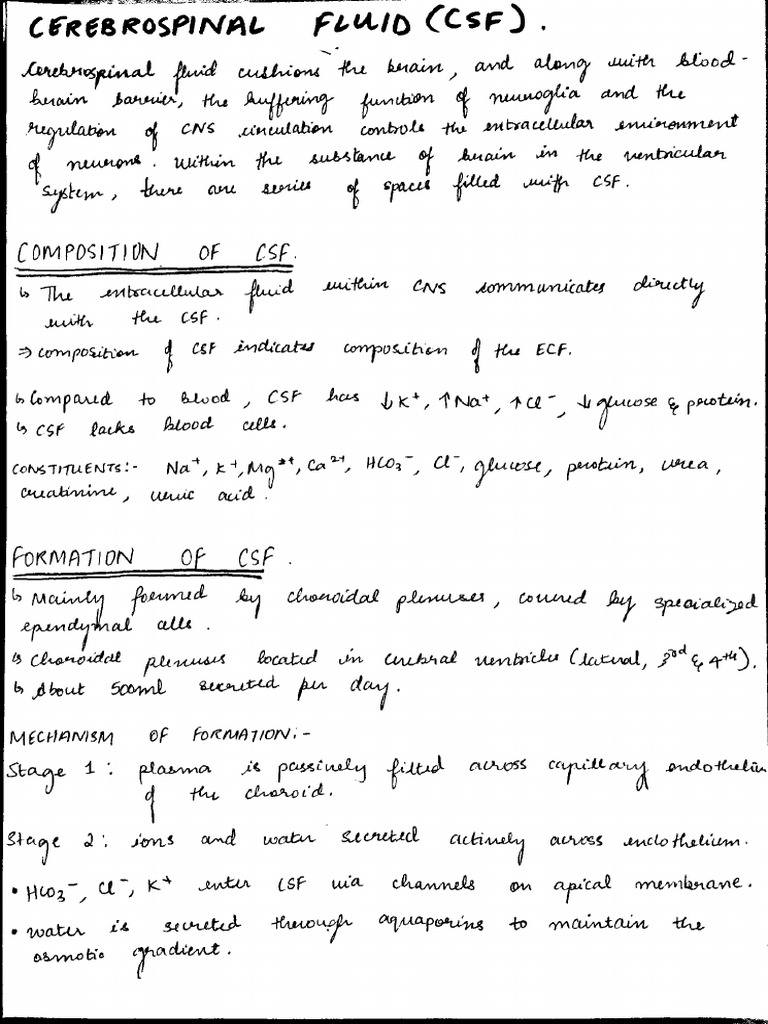 CEREBROSPINAL FLUID (CSF).
Cerebrospinal fluid cushions the brain, and along with blood-
brain barrier, the buffering function of neuroglia and the
regulation of CNS circulation controls the extracellular environment
of neurons. Within the substance of brain in the ventricular
system, there are series of spaces filled with CSF.
COMPOSITION OF CSF.
↳ The extracellular fluid within CNS communicates directly
with the CSF.
⇒ composition of CSF indicates composition of the ECF.
↳ Compared to blood, CSF has ↓K⁺, ↑Na⁺, ↑Cl⁻, ↓ glucose & protein.
↳ CSF lacks blood cells.
CONSTITUENTS:- Na⁺, K⁺, Mg²⁺, Ca²⁺, HCO₃⁻, Cl⁻, glucose, protein, urea,
creatinine, uric acid.
FORMATION OF CSF.
↳ Mainly formed by choroidal plexuses, covered by specialized
ependymal cells.
↳ Choroidal plexuses located in cerebral ventricles (lateral, 3rd & 4th).
↳ About 500ml secreted per day.
MECHANISM OF FORMATION:-
Stage 1: plasma is passively filted across capillary endothelium
of the choroid.
Stage 2: ions and water secreted actively across endothelium.
• HCO₃⁻, Cl⁻, K⁺ enter CSF via channels on apical membrane.
• water is secreted through aquaporins to maintain the
osmotic gradient.